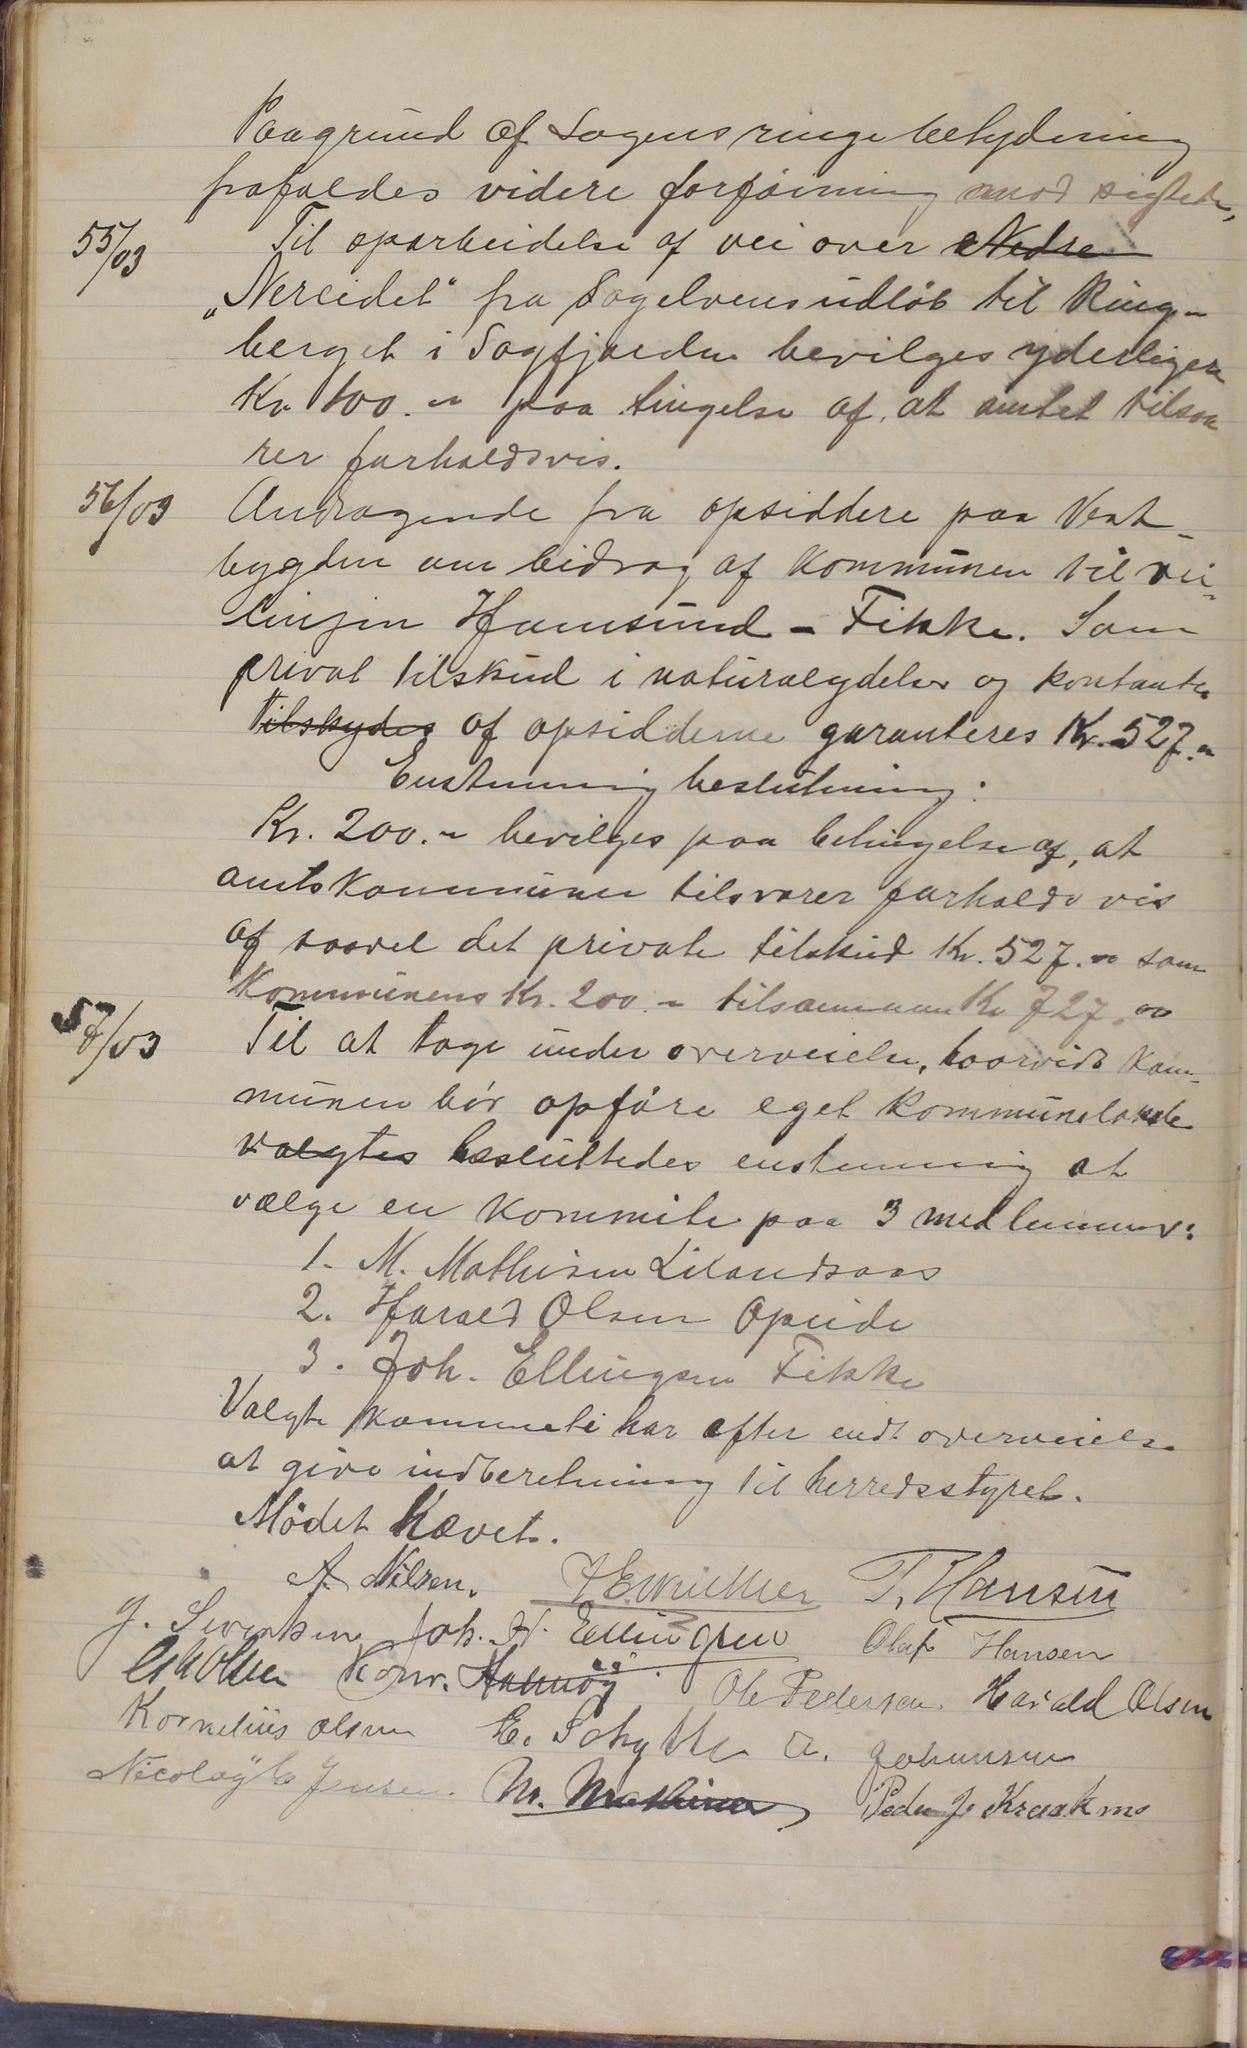 Paagrund af Sagens ringe betydning
frafaldes videre forføining mod sigtede,
55/03 Til oparbeidelse af vei over Nedre
„Nereidet" fra Sagelvens udløb til Ring-
berget i Sagfjorden bevilges yderligere
Kr. 100.- paa tingelse af, at amtet tilsva
rer forholdsvis.
56/03 Andragende fra opsiddere paa Vest-
bygden om bidrag af Kommunen til vei-
linjen Hamsund - Fikke. Som
privat tilskud i naturalydelser og kontanter
Tilskydes af opsidderne garanteres Kr. 527.-
Enstemmig beslutning:
Kr. 200.- bevilges paa betingelse af, at
amtskommunen tilsvarer forholdsvis
af saavel det private tilskud Kr. 527.- som
Kommunens Kr. 200.- tilsammen Kr 727.00
57/03 Til at tage under overveielse, hvorvidt Kom-
munen bør opføre eget Kommunelokale
valgtes besluttedes enstemmig at
vælge en Kommite paa 3 medlemmer:
1. M. Mathisen Lilandsaas
2. Harald Olsen Opeide
3. Joh. Ellingsen Fikke
Valgte Kommite har efter endt overveielse
at give indberetning til herredsstyret.
Mødet hævet.
A. Nilsen. T. Hansen
J. Sivertsen Joh. A. Ellingsen Olaf Hansen
Konr. Ole Pedersen Harald Olsen
Kornelius Olsen E. Schytte A. Johansen
Nicolay Jensen. M. Mathisen Peder J. Kraakmo